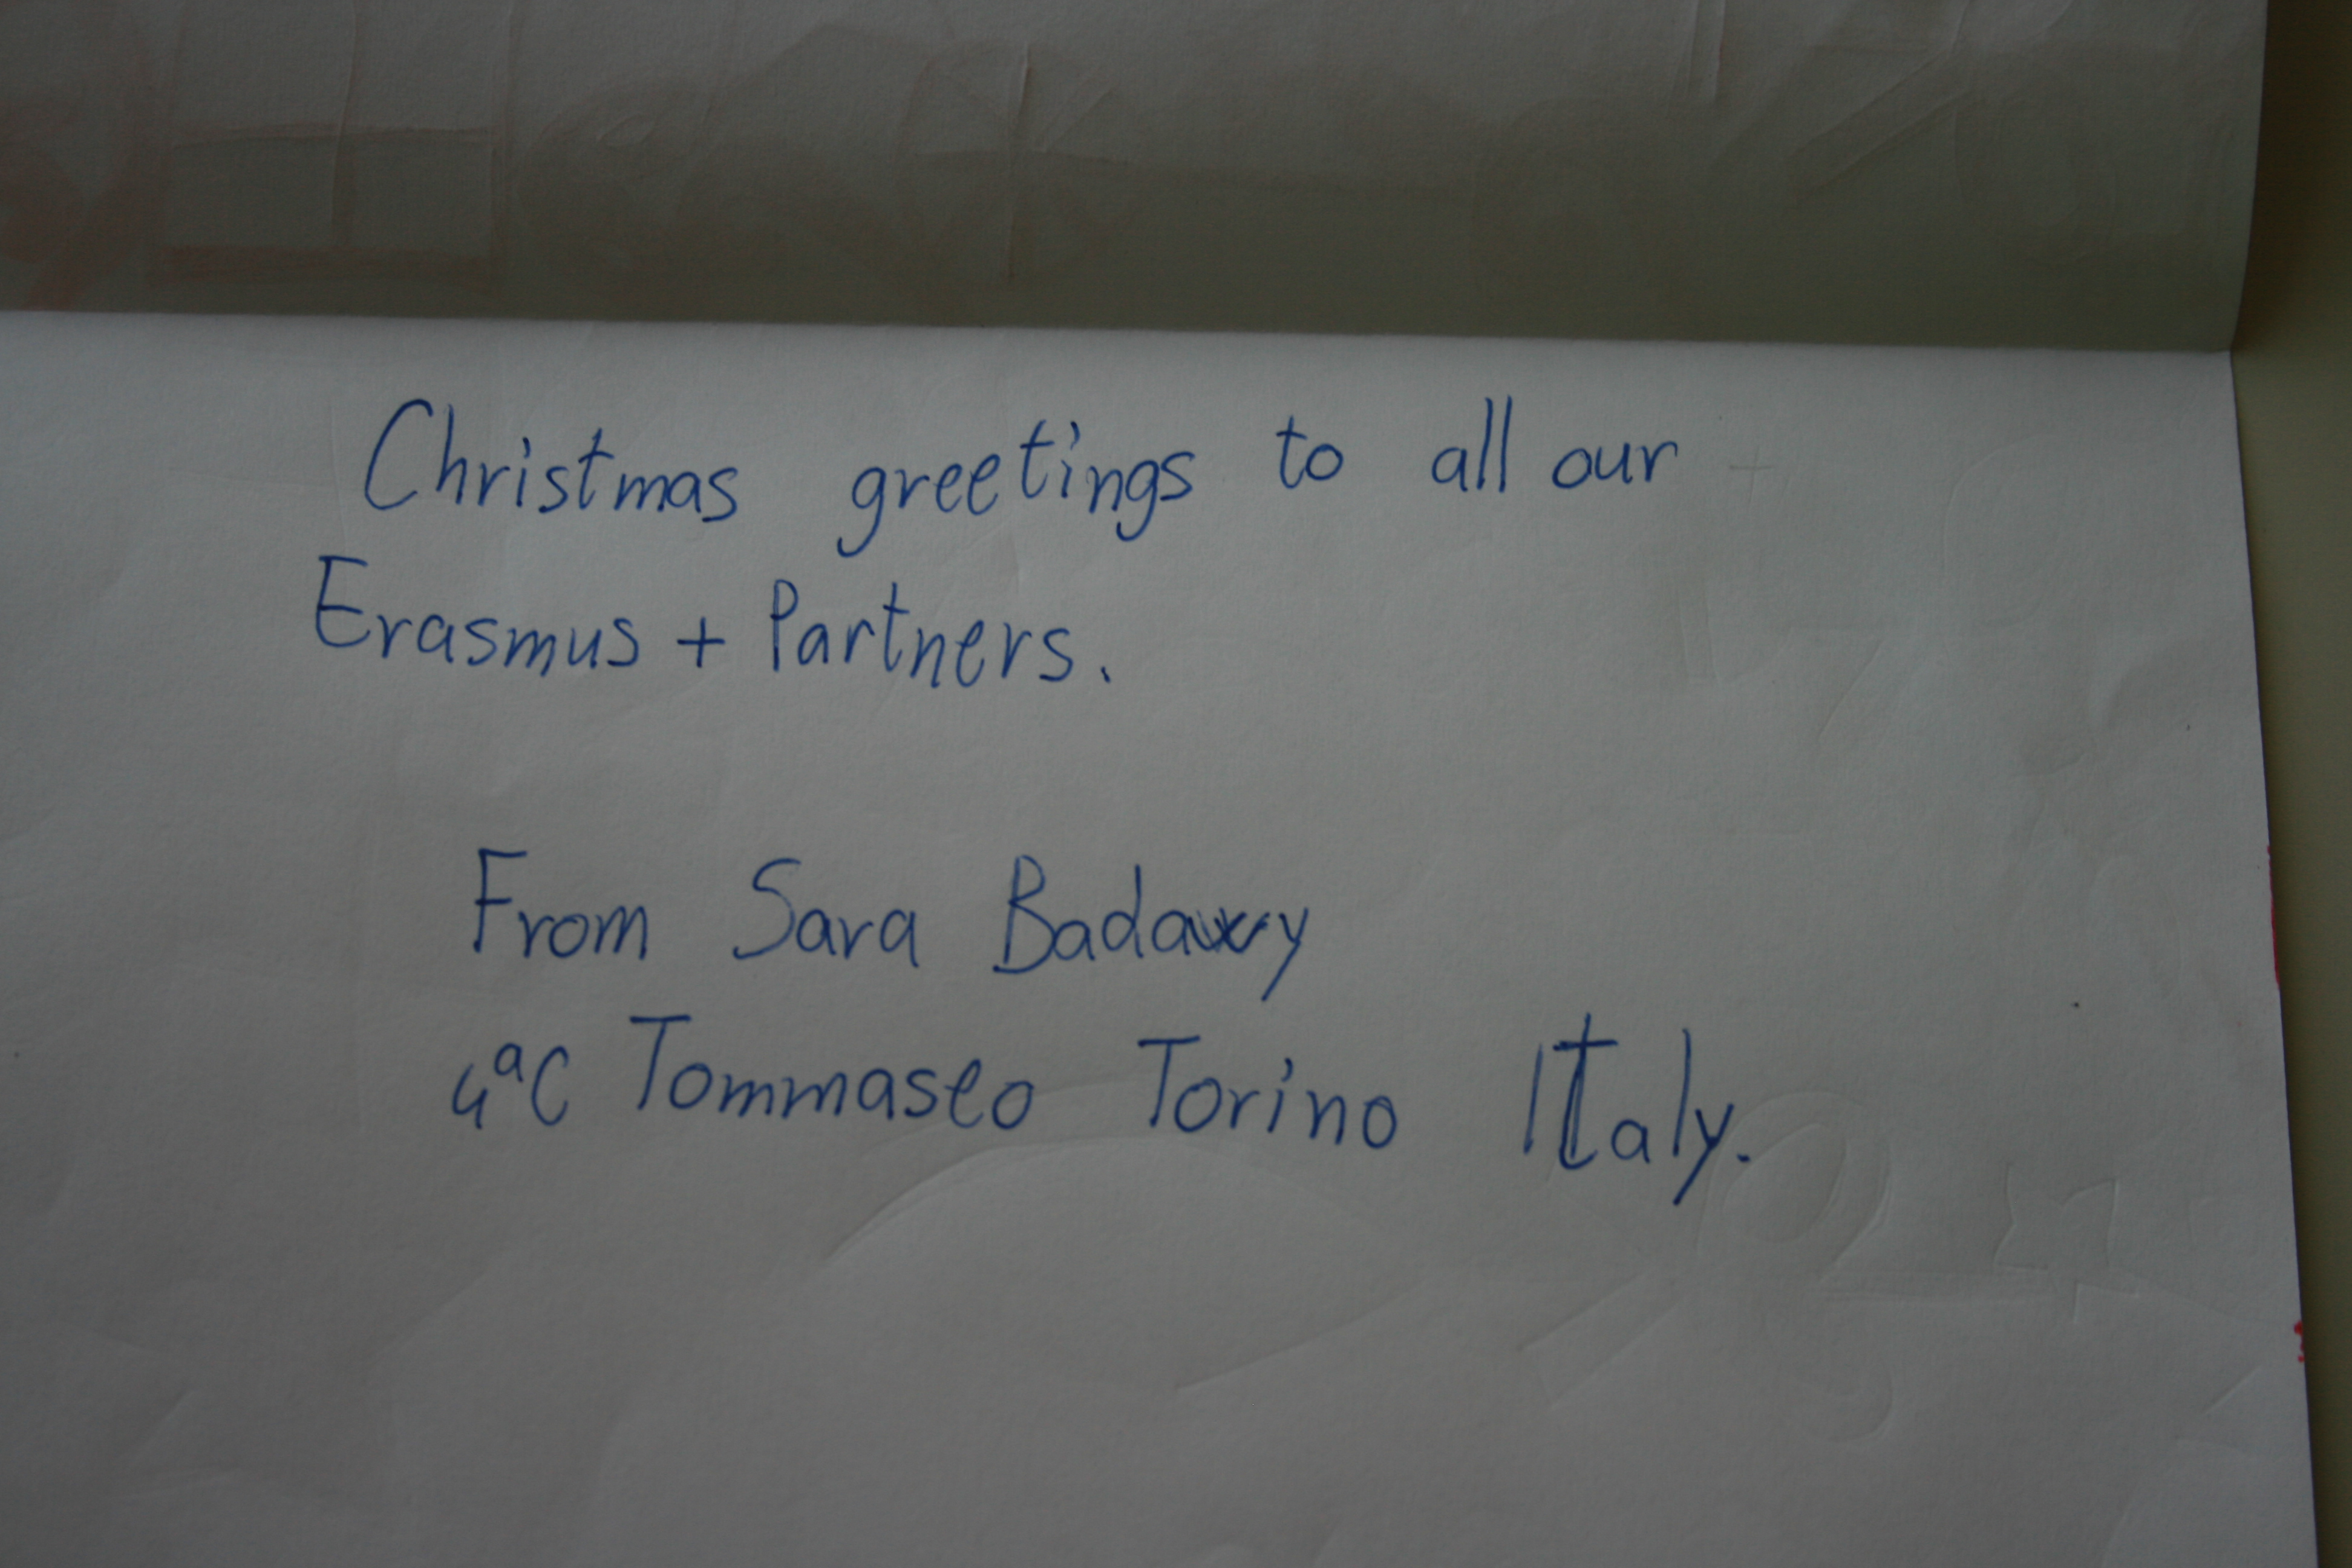 Christmas greetings to all our
Erasmus + Partners.
From Sara Badawy
4ªC Tommaseo Torino Italy.